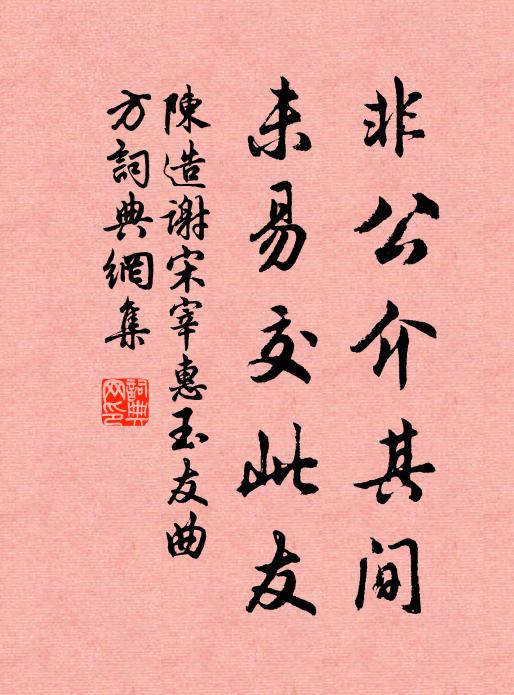 非公介其間
未易交此友
陳造謝宋宰惠玉友曲
方詞典網集
詞典網印